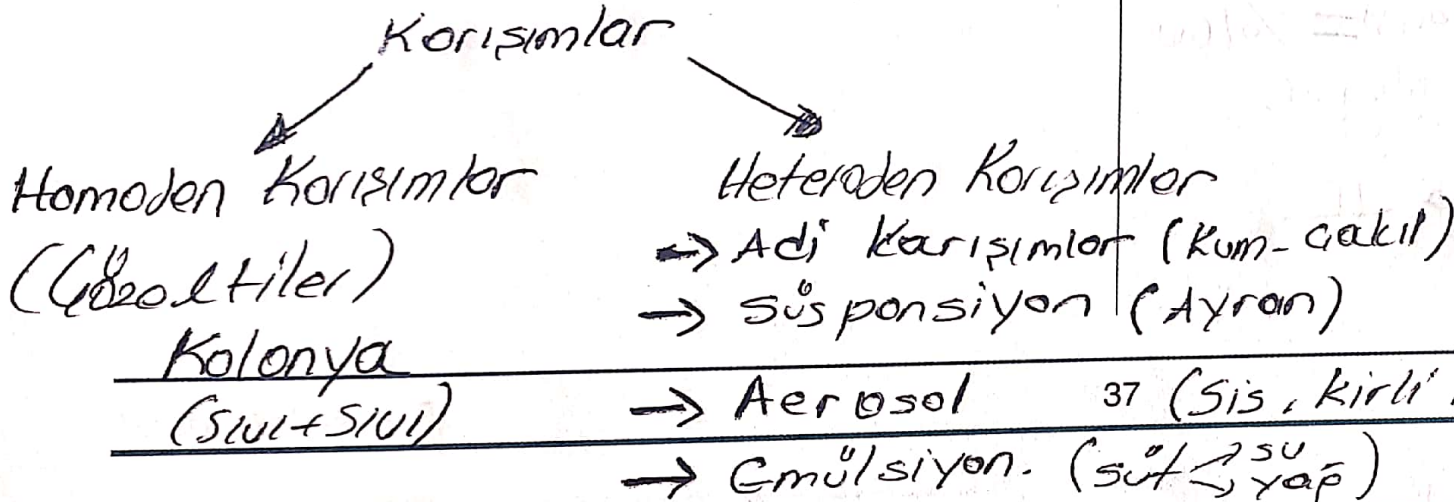 Karışımlar
Homojen Karışımlar
(Çözeltiler)
Kolonya
(Sıvı+Sıvı)
Heterojen Karışımlar
→ Adi Karışımlar (Kum-çakıl)
→ Süspansiyon (Ayran)
→ Aerosol 37 (Sis, kirli
→ Emülsiyon. (süt → su
→ yağ)